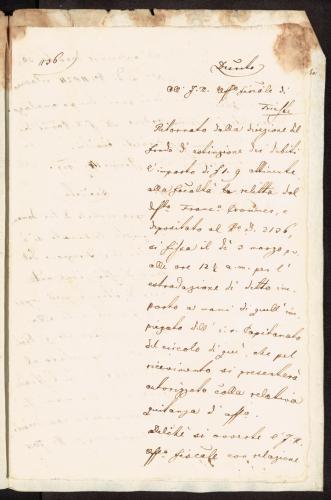 1136
Decreto
All' I. R. Uff° fiscale di
Trieste
Ritornato dalla direzione del
fondo di estinzione dei debiti
l'importo di f. 9 attinente
alla facoltà relitta dal
deff° Franc°
depositato al N° D. 2136,
si fissa il dì 3 marzo p. v.
alle ore 12½ a.m. per l'
estradazione di detto im-
porto a mani di quell' im-
piegato dell' i. r. Capitanato
del circolo di qui, che pel
ricevimento si presenterà
autorizzato colla relativa
quitanza d' uffo.
Locchè si avverte l' I. R.
Uff° fiscale con relazione